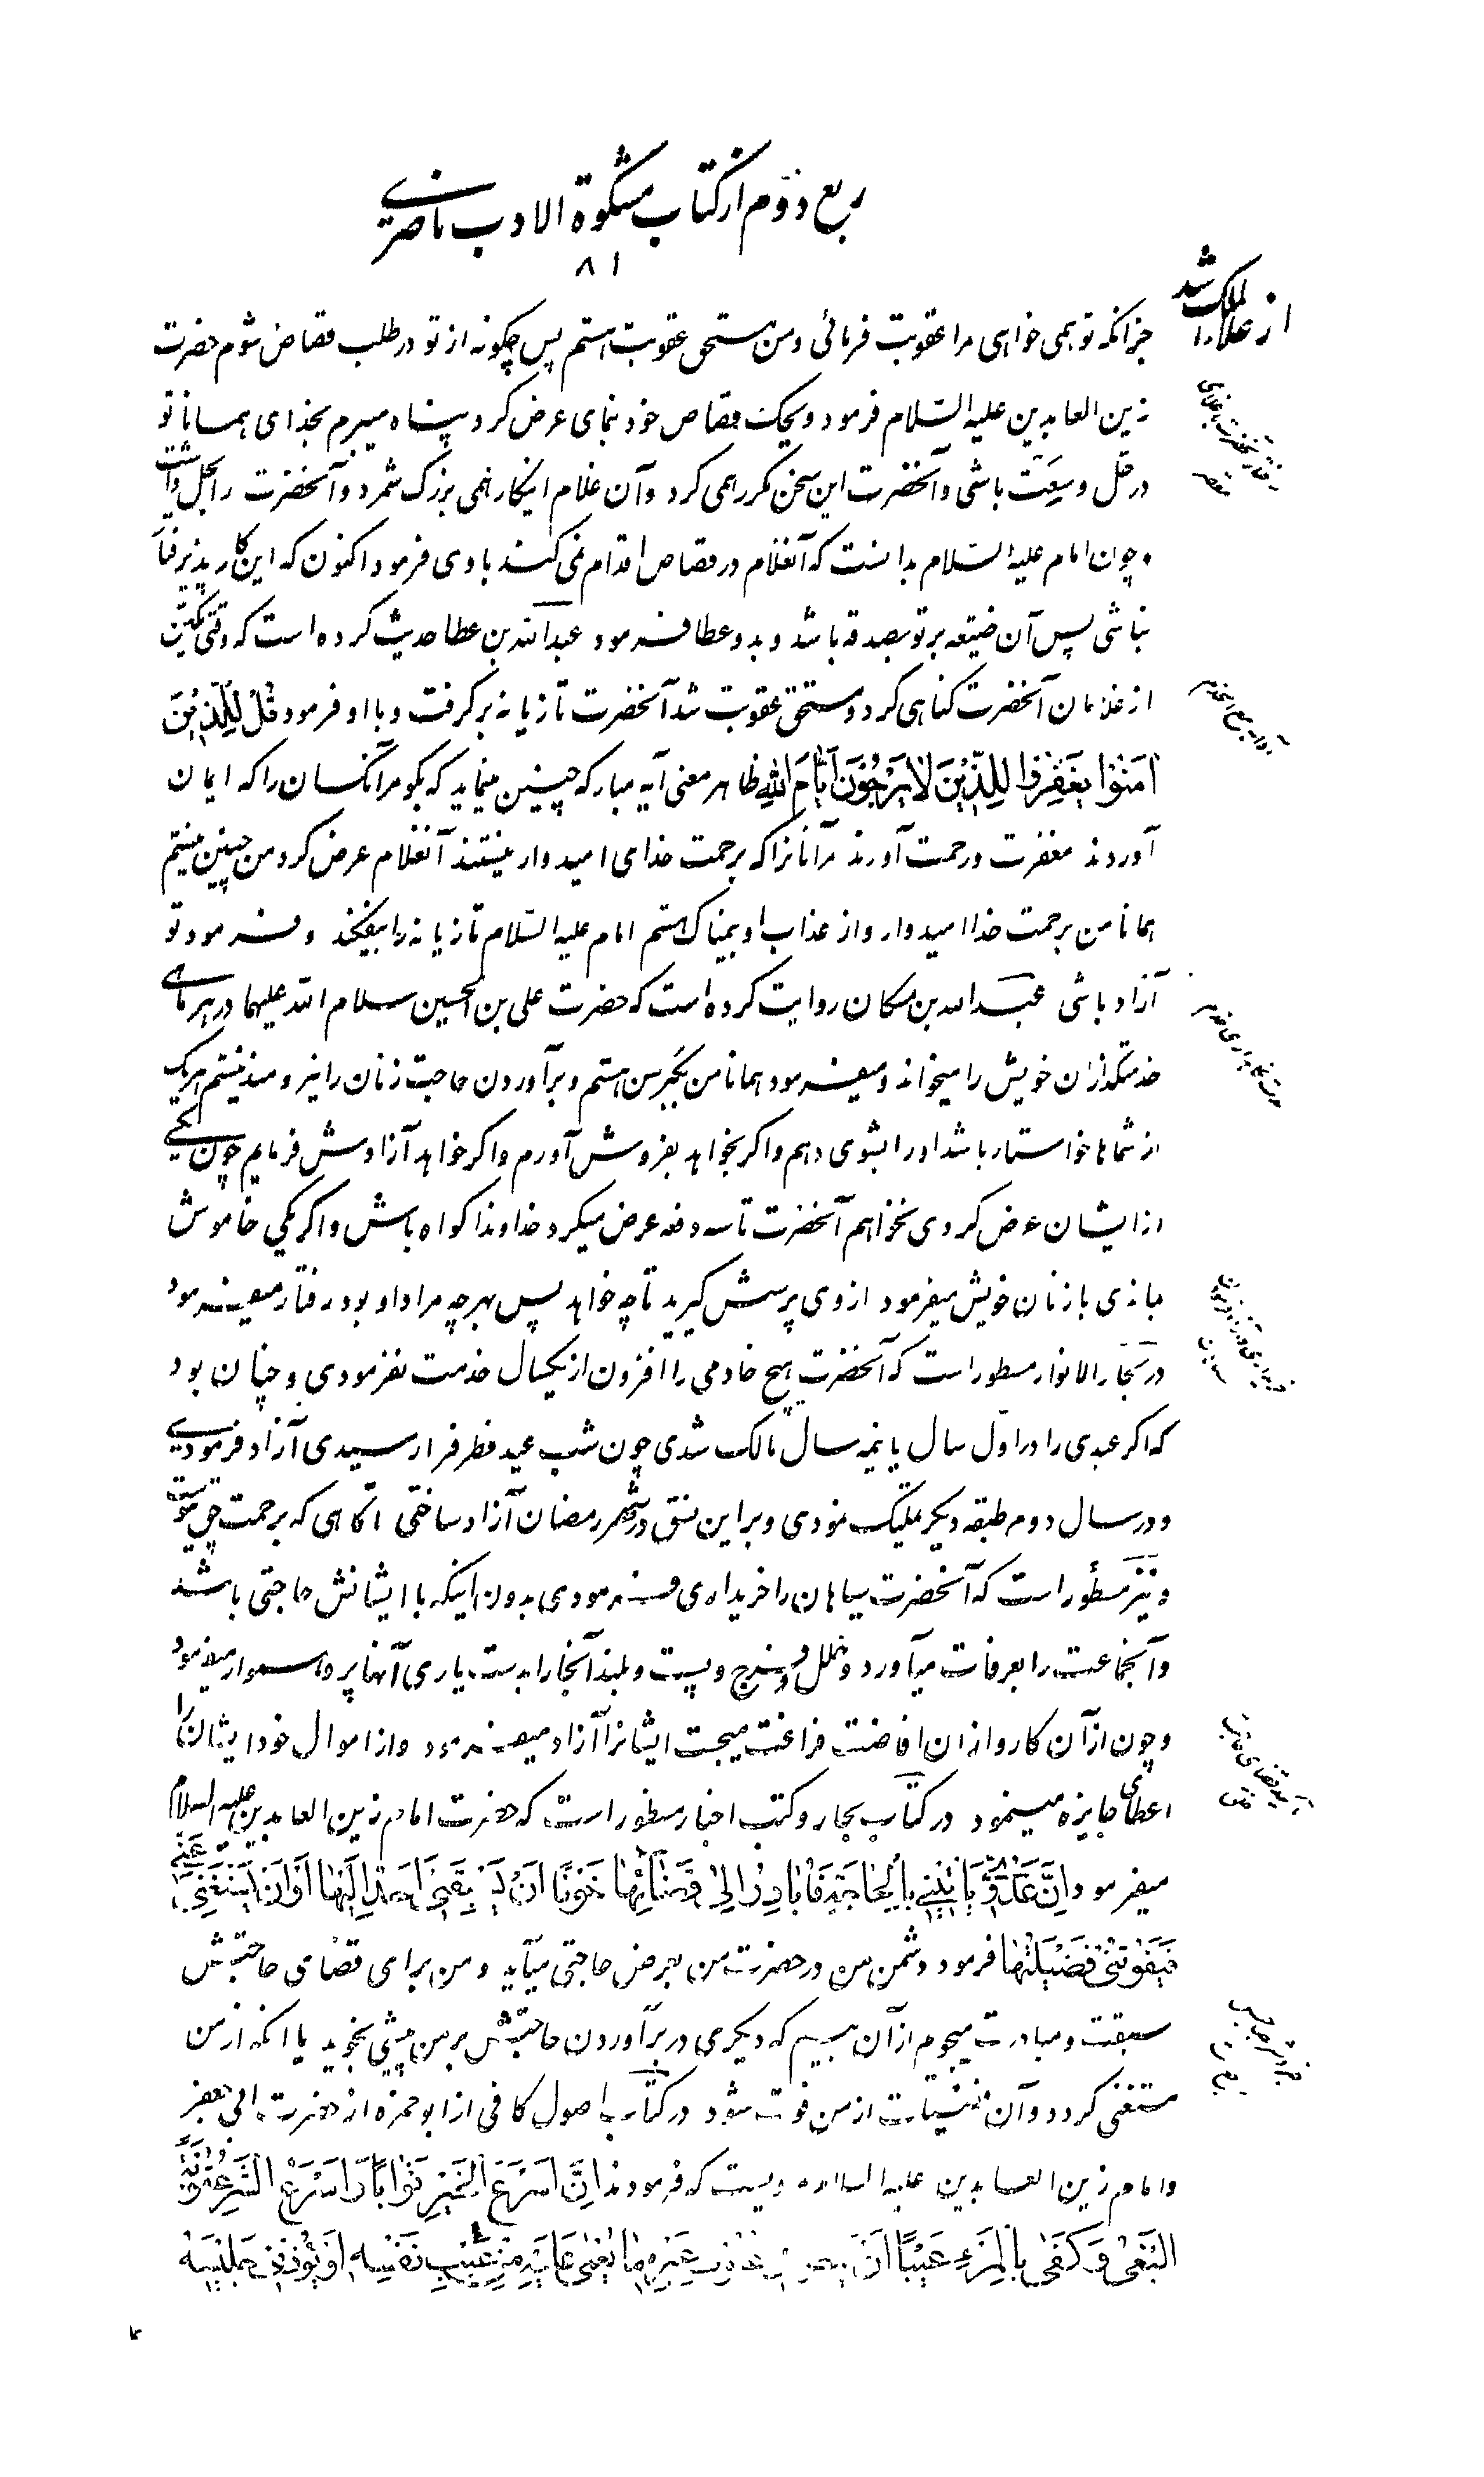 ربع دوم از کتاب مشکوة الادب ناصری
۸۱
جز آنکه تو همی خواهی مرا عقوبت فرمائی و من مستحق عقوبت هستم پس چگونه از تو در طلب قصاص شوم حضرت
زین العابدین علیه السّلام فرمود ویحک قصاص خود نمای عرض کرد پناه میبرم بخدای همانا تو
در حلّ و سِعَت باشی و آنحضرت این سخن مکرر همی کرد و آن غلام اینکار همی بزرگ شمرد و آنحضرت را بحل داشت
و چون امام علیه السّلام بدانست که آنغلام در قصاص اقدام نمی کند با وی فرمود اکنون که این کار پذیرفتار
نباشی پس آن ضیعه بر تو بصدقه باشد و بدو عطا فرمود عبدالله بن عطا حدیث کرده است که وقتی یکتن
از غلامان آنحضرت گناهی کرد و مستحق عقوبت شد آنحضرت تازیانه برگرفت و با او فرمود قُلْ لِلَّذِینَ
امَنُوا یَغْفِرُوا لِلَّذِینَ لا یَرْجُونَ اَیّامَ اللهِ ظاهر معنی آیه مبارکه چنین مینماید که بگو مر آنکسان را که ایمان
آوردند مغفرت و رحمت آورند مر آنانرا که برحمت خدای امیدوار نیستند آنغلام عرض کرد من چنین نیستم
همانا من برحمت خدا امیدوار و از عذاب او بیمناک هستم امام علیه السّلام تازیانه را بیفکند و فرمود تو
آزاد باشی عبدالله بن مسکان روایت کرده است که حضرت علی بن الحسین سلام الله علیهما در هر ماهی
خدمتگذاران خویش را میخواند و میفرمود همانا من کبیر سن هستم و برآوردن حاجت زنان را نیرومند نیستم هریک
از شماها خواستار باشد او را بشوی دهم و اگر بخواهد بفروش آورم و اگر خواهد آزادش فرمایم چون یکی
از ایشان عرض کردی نخواهم آنحضرت تا سه دفعه عرض میکرد خداوندا گواه باش و اگر یکی خاموش
ماندی با زنان خویش میفرمود از وی پرسش گیرید تا چه خواهد پس بهر چه مراد او بود رفتار میفرمود
در بحار الانوار مسطور است که آنحضرت هیچ خادمی را افزون از یکسال خدمت نفرمودی و چنان بود
که اگر عبدی را در اوّل سال یا نیمه سال مالک شدی چون شب عید فطر فرا رسیدی آزاد فرمودی
و در سال دوم طبقه دیگر تملیک نمودی و بر این نسق در شهر رمضان آزاد ساختی تا گاهی که برحمت حق پیوست
و نیز مسطور است که آنحضرت سیاهان را خریداری فرمودی بدون اینکه با ایشانش حاجتی باشد
و آنجماعت را بعرفات میآورد و خلل و فرج و پست و بلند آنجا را بدست یاری آنها پر و هموار میفرمود
و چون از آن کار و از ان افاضت فراغت میجست ایشانرا آزاد میفرمود و از اموال خود ایشان را
اعطای جایزه مینمود در کتاب بحار و کتب اخبار مسطور است که حضرت امام زین العابدین علیه السلام
میفرمود اِنَّ عَدُوّی یَاْتینی بِالْحاجَةِ فَاُبادِرُ اِلی قَضائِها خَوْفًا اَنْ یَسْبِقَنی اَحَدٌ اِلَیْها اَوْ اَنْ یَسْتَغْنِیَ عَنّی
فَیَفُوتَنی فَضیلَتُها فرمود دشمن من در حضرت من بعرض حاجتی میآید و من برای قضای حاجتش
سبقت و مبادرت میجویم از آن بیم که دیگری در برآوردن حاجتش بر من پیشی بجوید یا آنکه از من
مستغنی گردد و آن فضیلت از من فوت شود در کتاب اصول کافی از ابو حمزه از حضرت ابی جعفر
و امام زین العابدین علیه السلام مرویست که فرمودند اِنَّ اَسْرَعَ الْخَیْرِ ثَوابًا اَلْبِرُّ وَ اَسْرَعُ الشَّرِّ عُقُوبَةً
الْبَغْیُ وَ کَفی بِالْمَرْءِ عَیْبًا اَنْ عُیُوبِ غَیْرِهِ ما یَعْمی عَلَیْهِ مِنْ عَیْبِ نَفْسِهِ اَوْ یُؤْذِیَ جَلیسَهُ